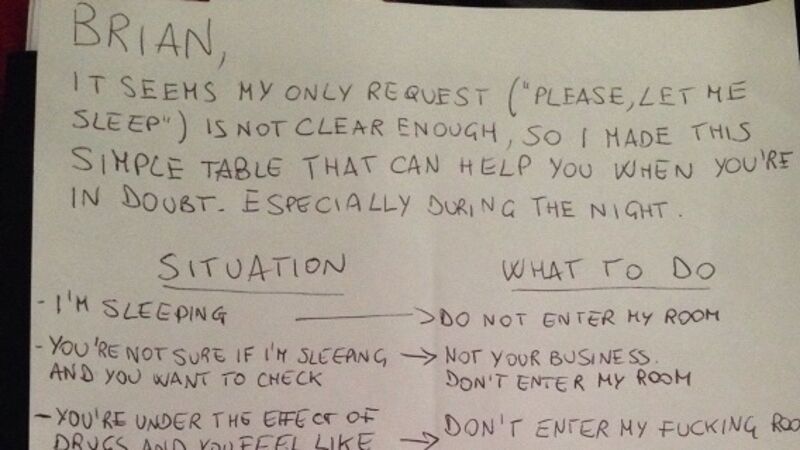 BRIAN,
IT SEEMS MY ONLY REQUEST ("PLEASE, LET ME
SLEEP") IS NOT CLEAR ENOUGH, SO I MADE THIS
SIMPLE TABLE THAT CAN HELP YOU WHEN YOU'RE
IN DOUBT. ESPECIALLY DURING THE NIGHT.
SITUATION WHAT TO DO
- I'M SLEEPING → DO NOT ENTER MY ROOM
- YOU'RE NOT SURE IF I'M SLEEPING → NOT YOUR BUSINESS.
AND YOU WANT TO CHECK DON'T ENTER MY ROOM
- YOU'RE UNDER THE EFFECT OF DON'T ENTER MY FUCKING ROO
DRUGS AND YOU FEEL LIKE →